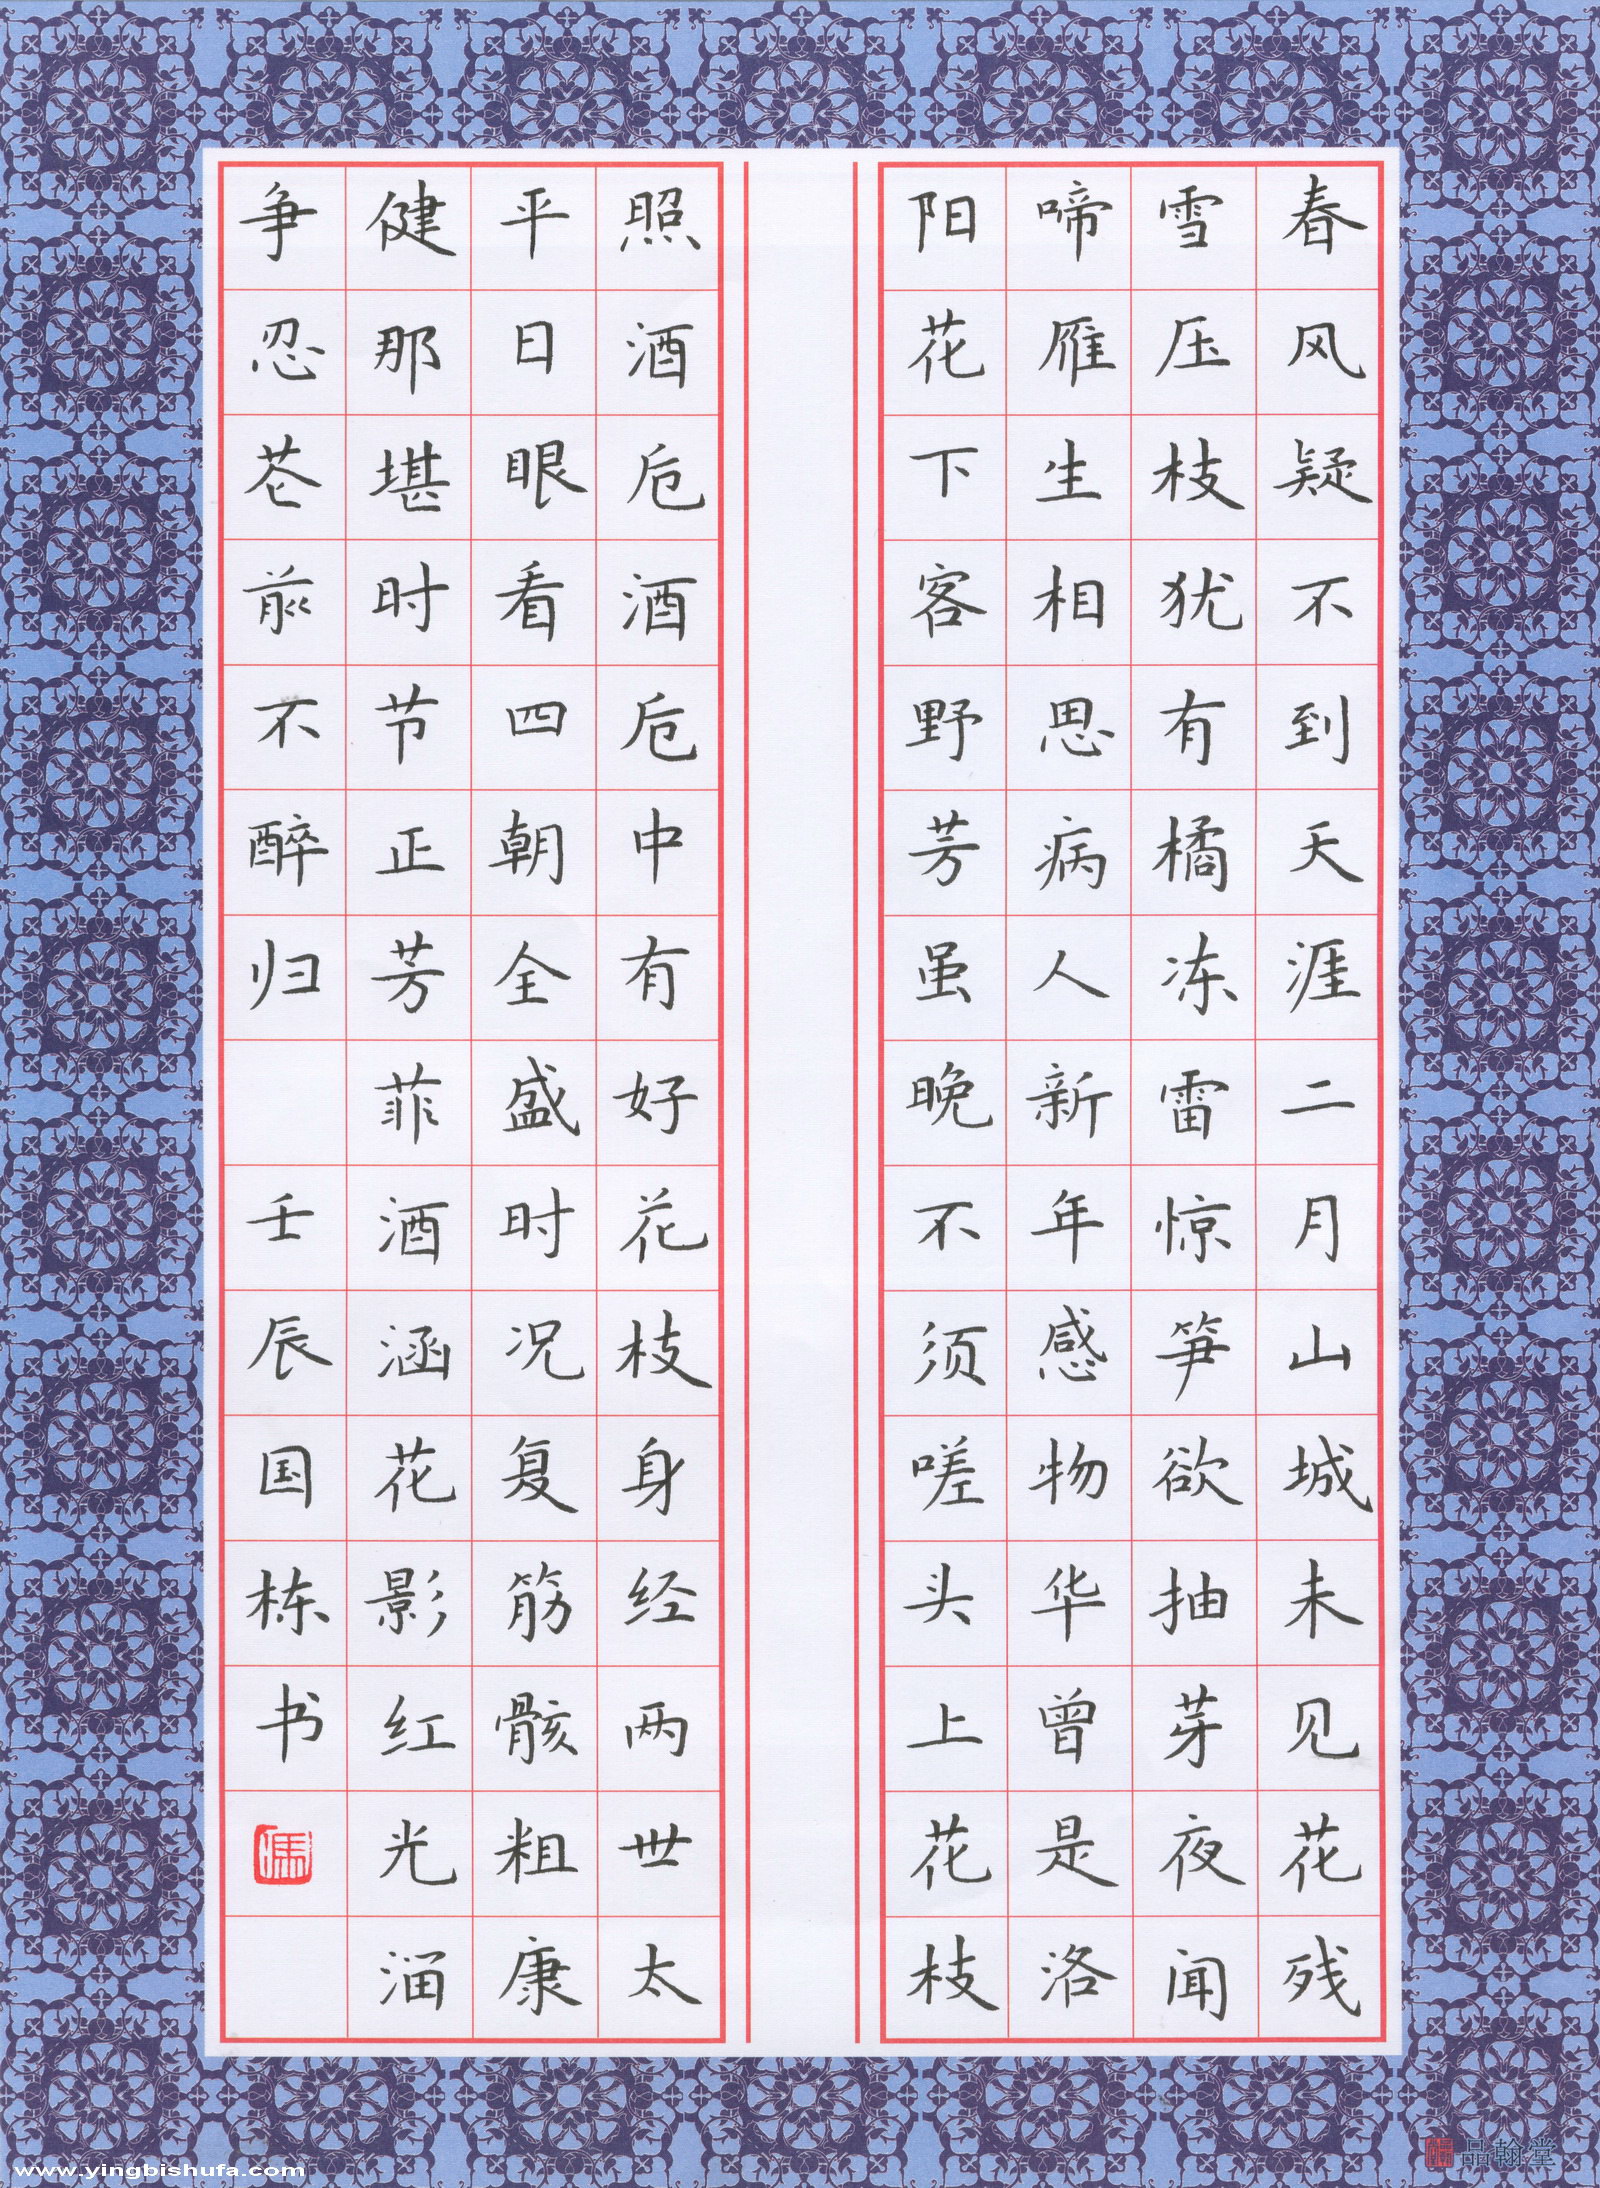 春风疑不到天涯二月山城未见花残
雪压枝犹有橘冻雷惊笋欲抽芽夜闻
啼雁生相思病人新年感物华曾是洛
阳花下客野芳虽晚不须嗟头上花枝
照酒卮酒卮中有好花枝身经两世太
平日眼看四朝全盛时况复筋骸粗康
健那堪时节正芳菲酒涵花影红光溜
争忍花前不醉归 壬辰国栋书
冯
www.yingbishufa.com
品翰堂